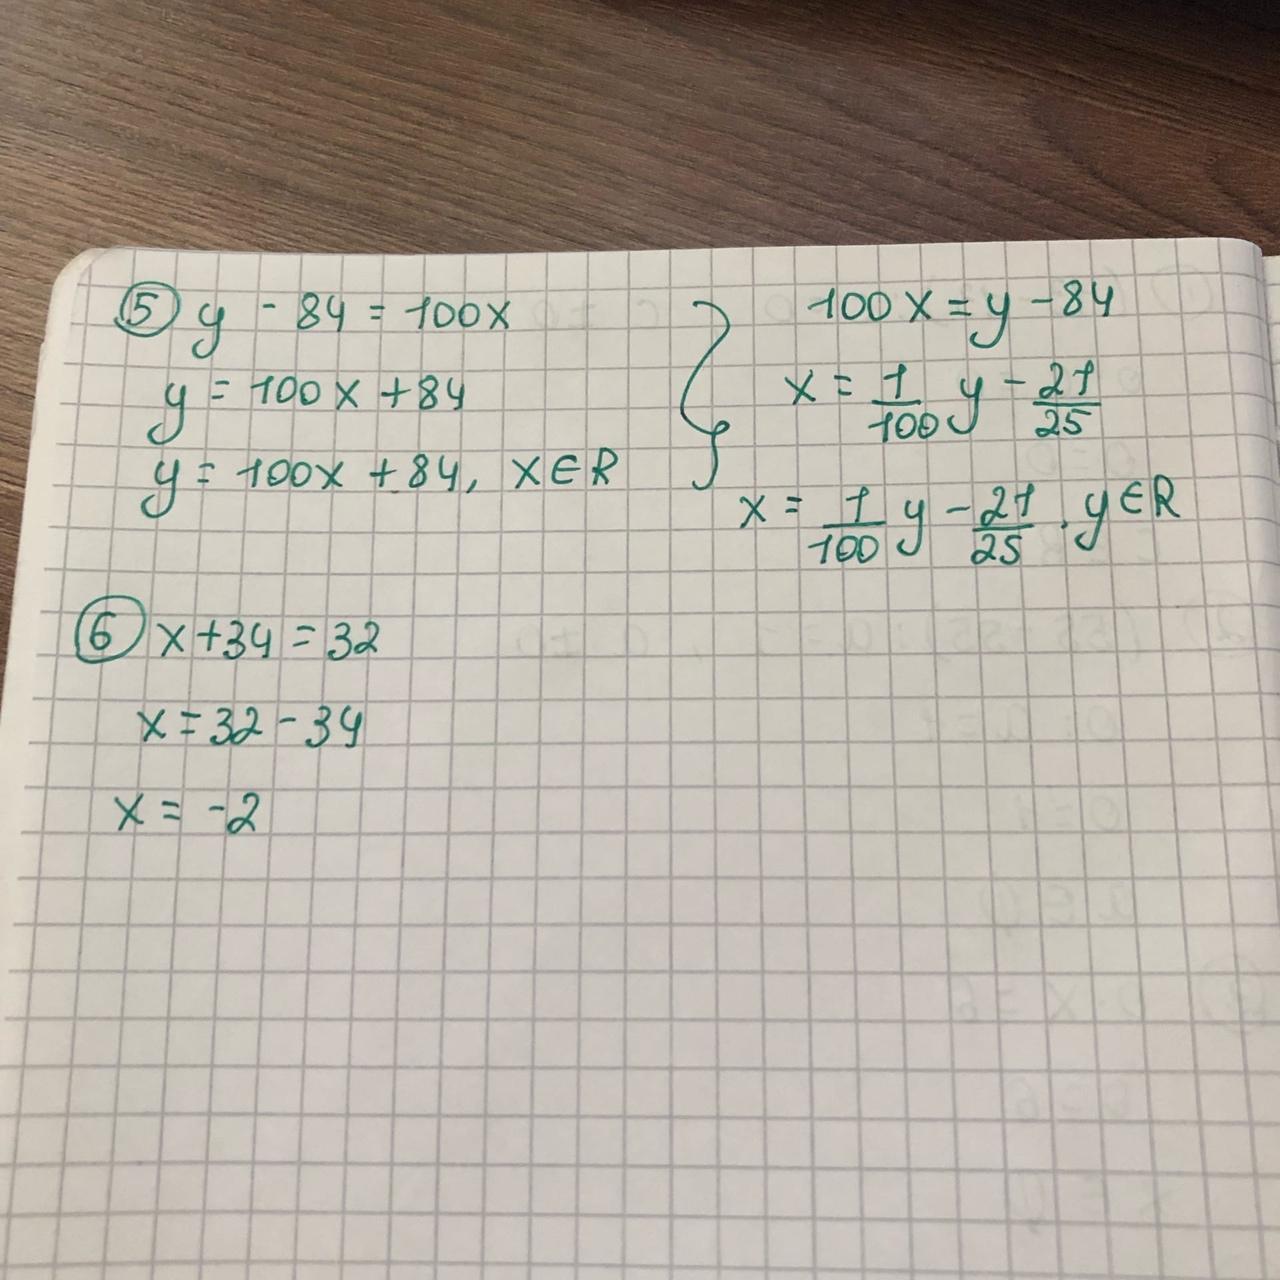 ⑤ y - 84 = 100x
y = 100x + 84
y = 100x + 84, x∈R
100x = y - 84
x = 1/100 y - 21/25
x = 1/100 y - 21/25, y∈R
⑥ x + 34 = 32
x = 32 - 34
x = -2